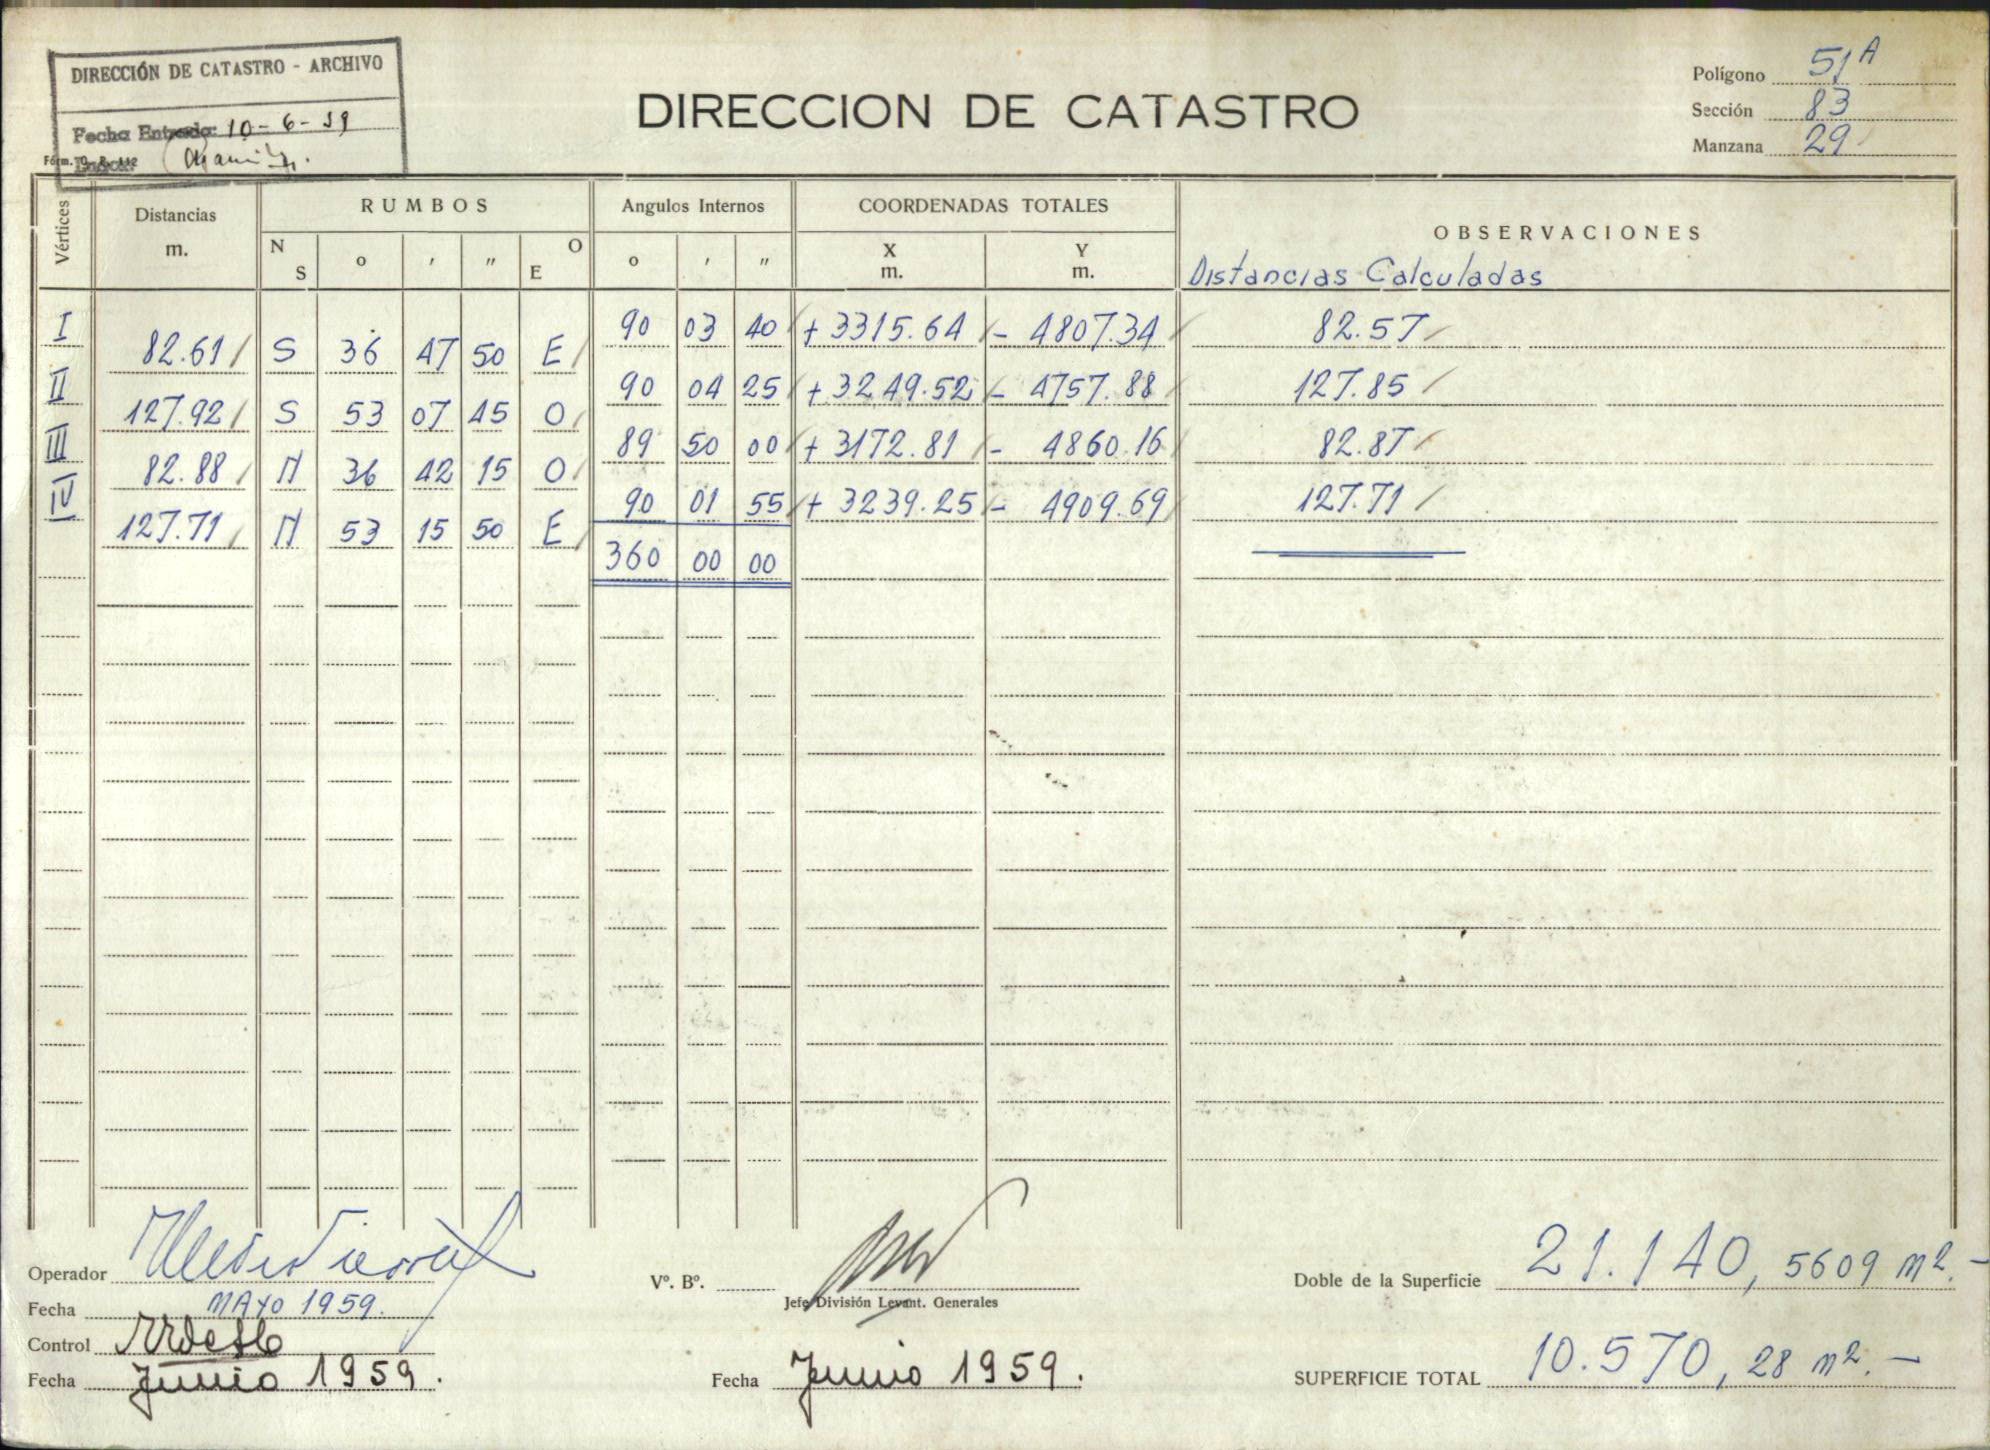 DIRECCIÓN DE CATASTRO - ARCHIVO
Fecha Entrada: 10-6-59
Fórm. O. P. 112
DIRECCION DE CATASTRO
Polígono 51 A
Sección 83
Manzana 29
Vértices Distancias m. RUMBOS Angulos Internos COORDENADAS TOTALES OBSERVACIONES
N S o ′ ″ O E o ′ ″ X m. Y m.
Distancias Calculadas
I 90 03 40 + 3315.64 - 4807.34 82.57
82.61 S 36 47 50 E
II 90 04 25 + 3249.52 - 4757.88 127.85
127.92 S 53 07 45 O
III 89 50 00 + 3172.81 - 4860.16 82.87
82.88 N 36 42 15 O
IV 90 01 55 + 3239.25 - 4909.69 127.71
127.71 N 53 15 50 E
360 00 00
Operador
Fecha MAYO 1959.
Control
Fecha Junio 1959.
Vº. Bº.
Jefe División Levant. Generales
Fecha Junio 1959.
Doble de la Superficie 21.140,5609 m2.-
SUPERFICIE TOTAL 10.570,28 m2.-